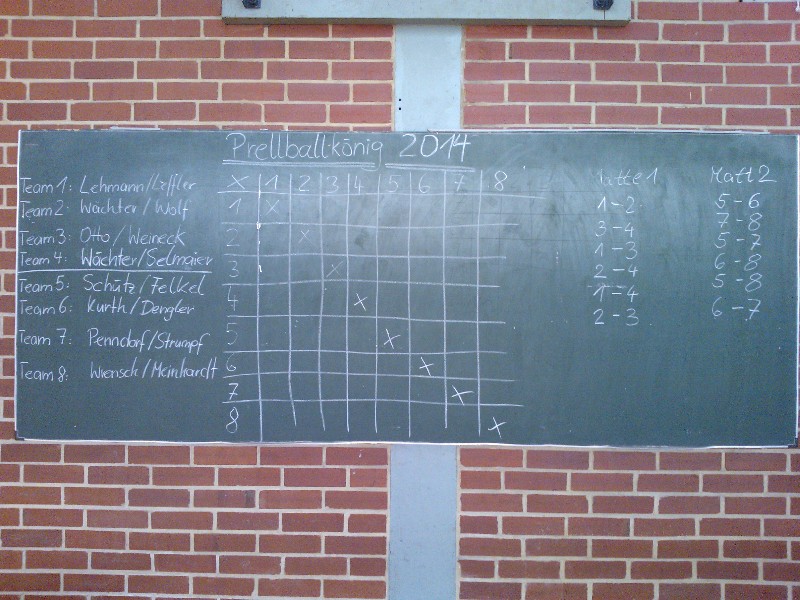 Prellballkönig 2014
Team 1: Lehmann/Löffler
Team 2: Wächter/Wolf
Team 3: Otto/Weineck
Team 4: Wächter/Selmaier
Team 5: Schütz/Felkel
Team 6: Kurth/Dengler
Team 7: Penndorf/Strumpf
Team 8: Wrensch/Meinhardt
X 1 2 3 4 5 6 7 8
1 X
2 X
3 X
4 X
5 X
6 X
7 X
8 X
Matte 1
1-2
3-4
1-3
2-4
1-4
2-3
Matt 2
5-6
7-8
5-7
6-8
5-8
6-7